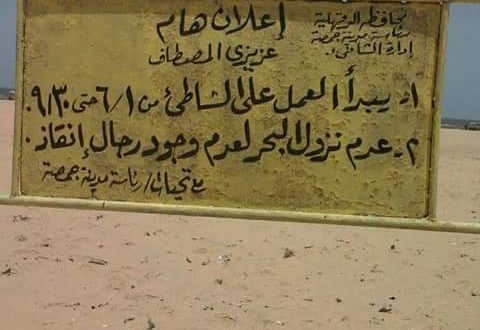 محافظة الدقهلية
رئاسة مدينة جمصة
إدارة الشاطئ
إعلان هام
عزيزي المصطاف
١- يبدأ العمل على الشاطئ من ٦/١ حتى ٩/٣٠.
٢- عدم نزول البحر لعدم وجود رجال إنقاذ.
مع تحيات / رئاسة مدينة جمصة